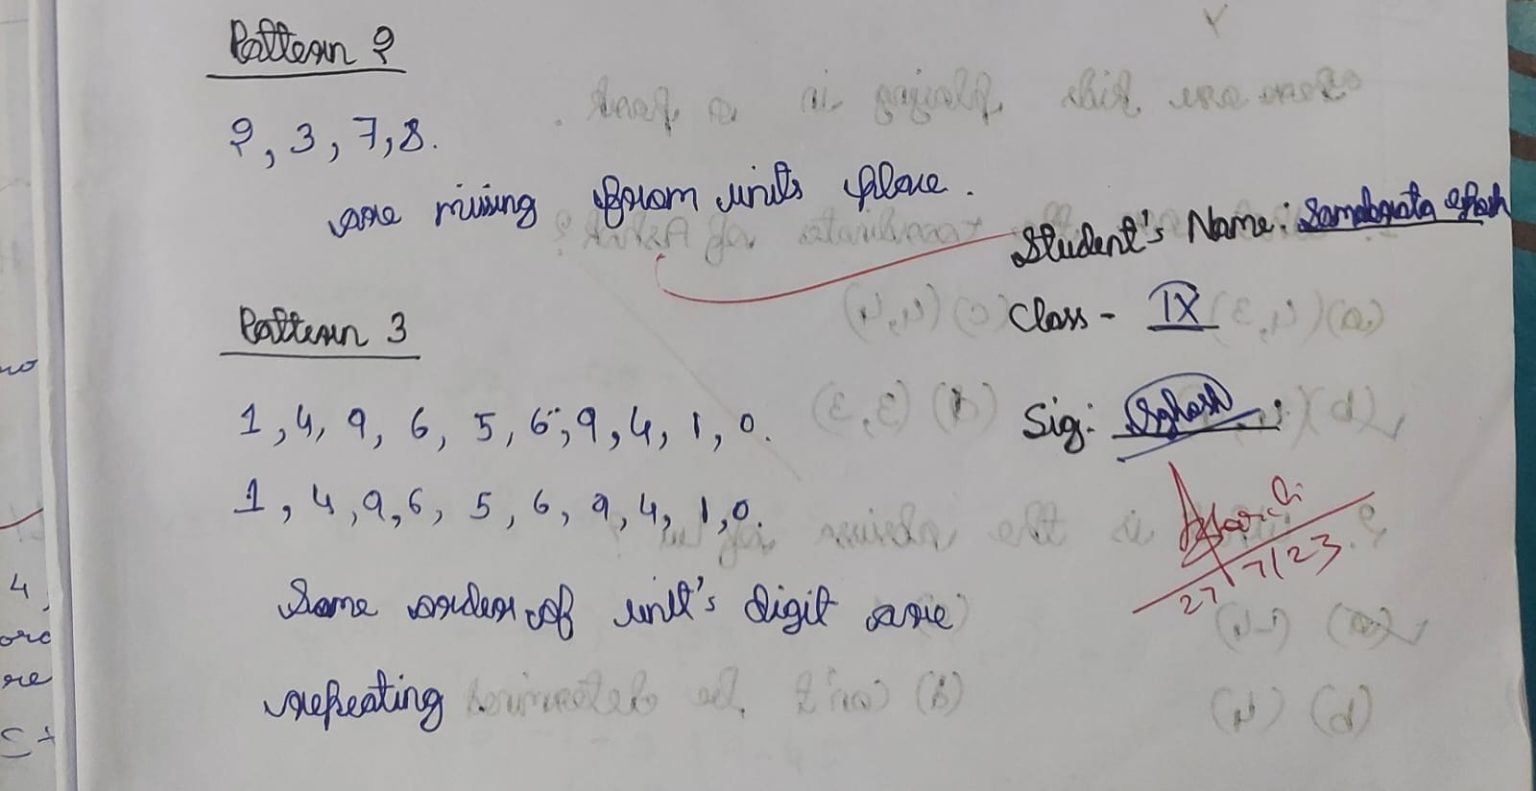 Pattern 2
2, 3, 7, 8.
are missing from units place.
Student's Name: Samabrata Ghosh
Class - IX
Pattern 3
1, 4, 9, 6, 5, 6, 9, 4, 1, 0.
Sig: SGhosh
1, 4, 9, 6, 5, 6, 9, 4, 1, 0.
27/7/23
Same order of unit's digit are
repeating